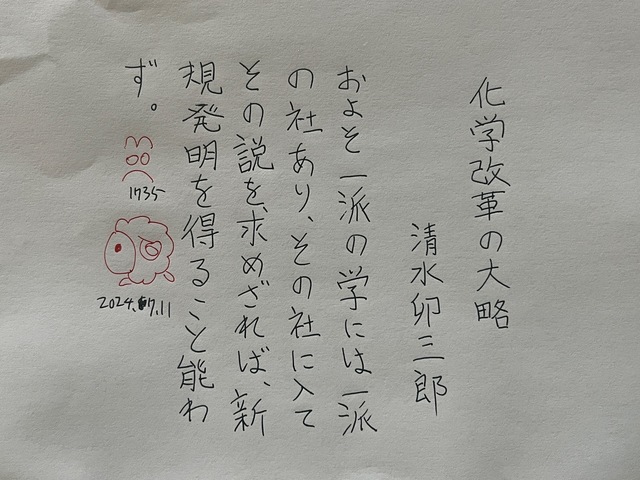 化学改革の大略
清水卯三郎
およそ一派の学には一派
の社あり、その社に入て
その説を求めざれば、新
規発明を得ること能わ
ず。
1735
2024.7.11